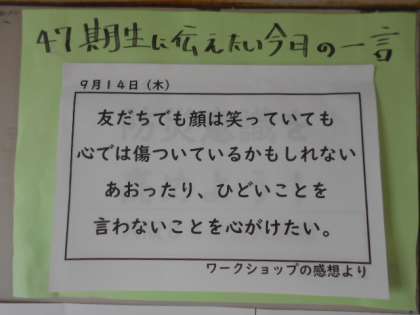 47期生に伝えたい今日の一言
9月14日（木）
友だちでも顔は笑っていても
心では傷ついているかもしれない
あおったり、ひどいことを
言わないことを心がけたい。
ワークショップの感想より